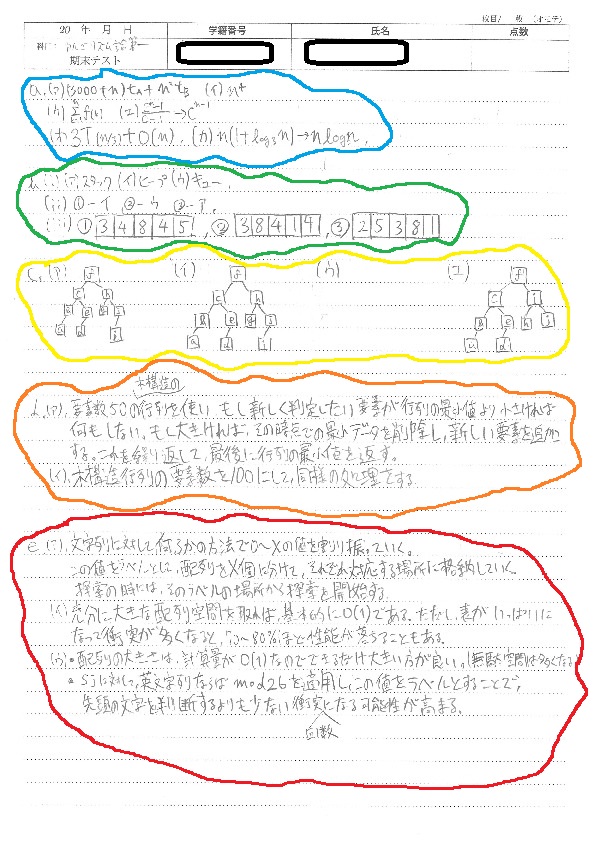 枚目/ 枚 (オモテ)
20 年 月 日 学籍番号 氏名 点数
科目: アルゴリズム論第一
期末テスト
a, (ア) (3000+n)tA+n²tB (イ) n⁴
(オ) 3T(n/3)+O(n), (カ) n(1+log₃n)→nlogn,
b, (i) (ア)スタック (イ)ヒープ (ウ)キュー,
(ii) ①-イ ②-ウ ③-ア,
(iii) ① 3 4 8 4 5 , ② 3 8 4 1 4 , ③ 2 5 3 8 1
c, (ア) (イ) (ウ) (エ)
木構造の
d, (ア), 要素数50の行列を使い もし新しく判定したい要素が行列の最小値より小さければ
何もしない。もし大きければ、その時点での最小データを削除し、新しい要素を追加
する。これを繰り返して、最後に行列の最小値を返す。
(イ), 木構造行列の要素数を100にして、同様の処理をする。
文字列に対して何らかの方法で0~Xの値を割り振っていく。
この値をラベルごとに、配列をX個に分けて、それぞれ対応する場所に格納していく。
探索の時には、そのラベルの場所から探索を開始する。
充分に大きな配列空間を取れば、基本的にO(1)である。ただし、表がいっぱいに
なって衝突が多くなると、80%ほど性能が落ちることもある。
・配列の大きさは、計算量がO(1)なのでできるだけ大きい方が良い。(無駄な空間は多くなる
・Sjに対し、英文字列ならば mod26を適用し、この値をラベルとすることで、
先頭の文字を判断するよりも少ない衝突になる可能性が高まる。
回数